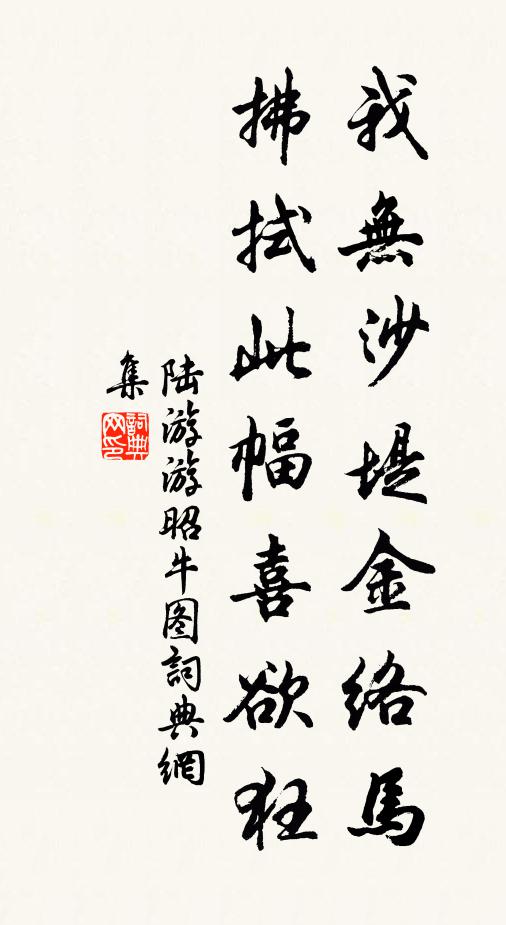 我無沙堤金络馬
拂拭此幅喜欲狂
陆游游昭牛图詞典網
集
詞典网印